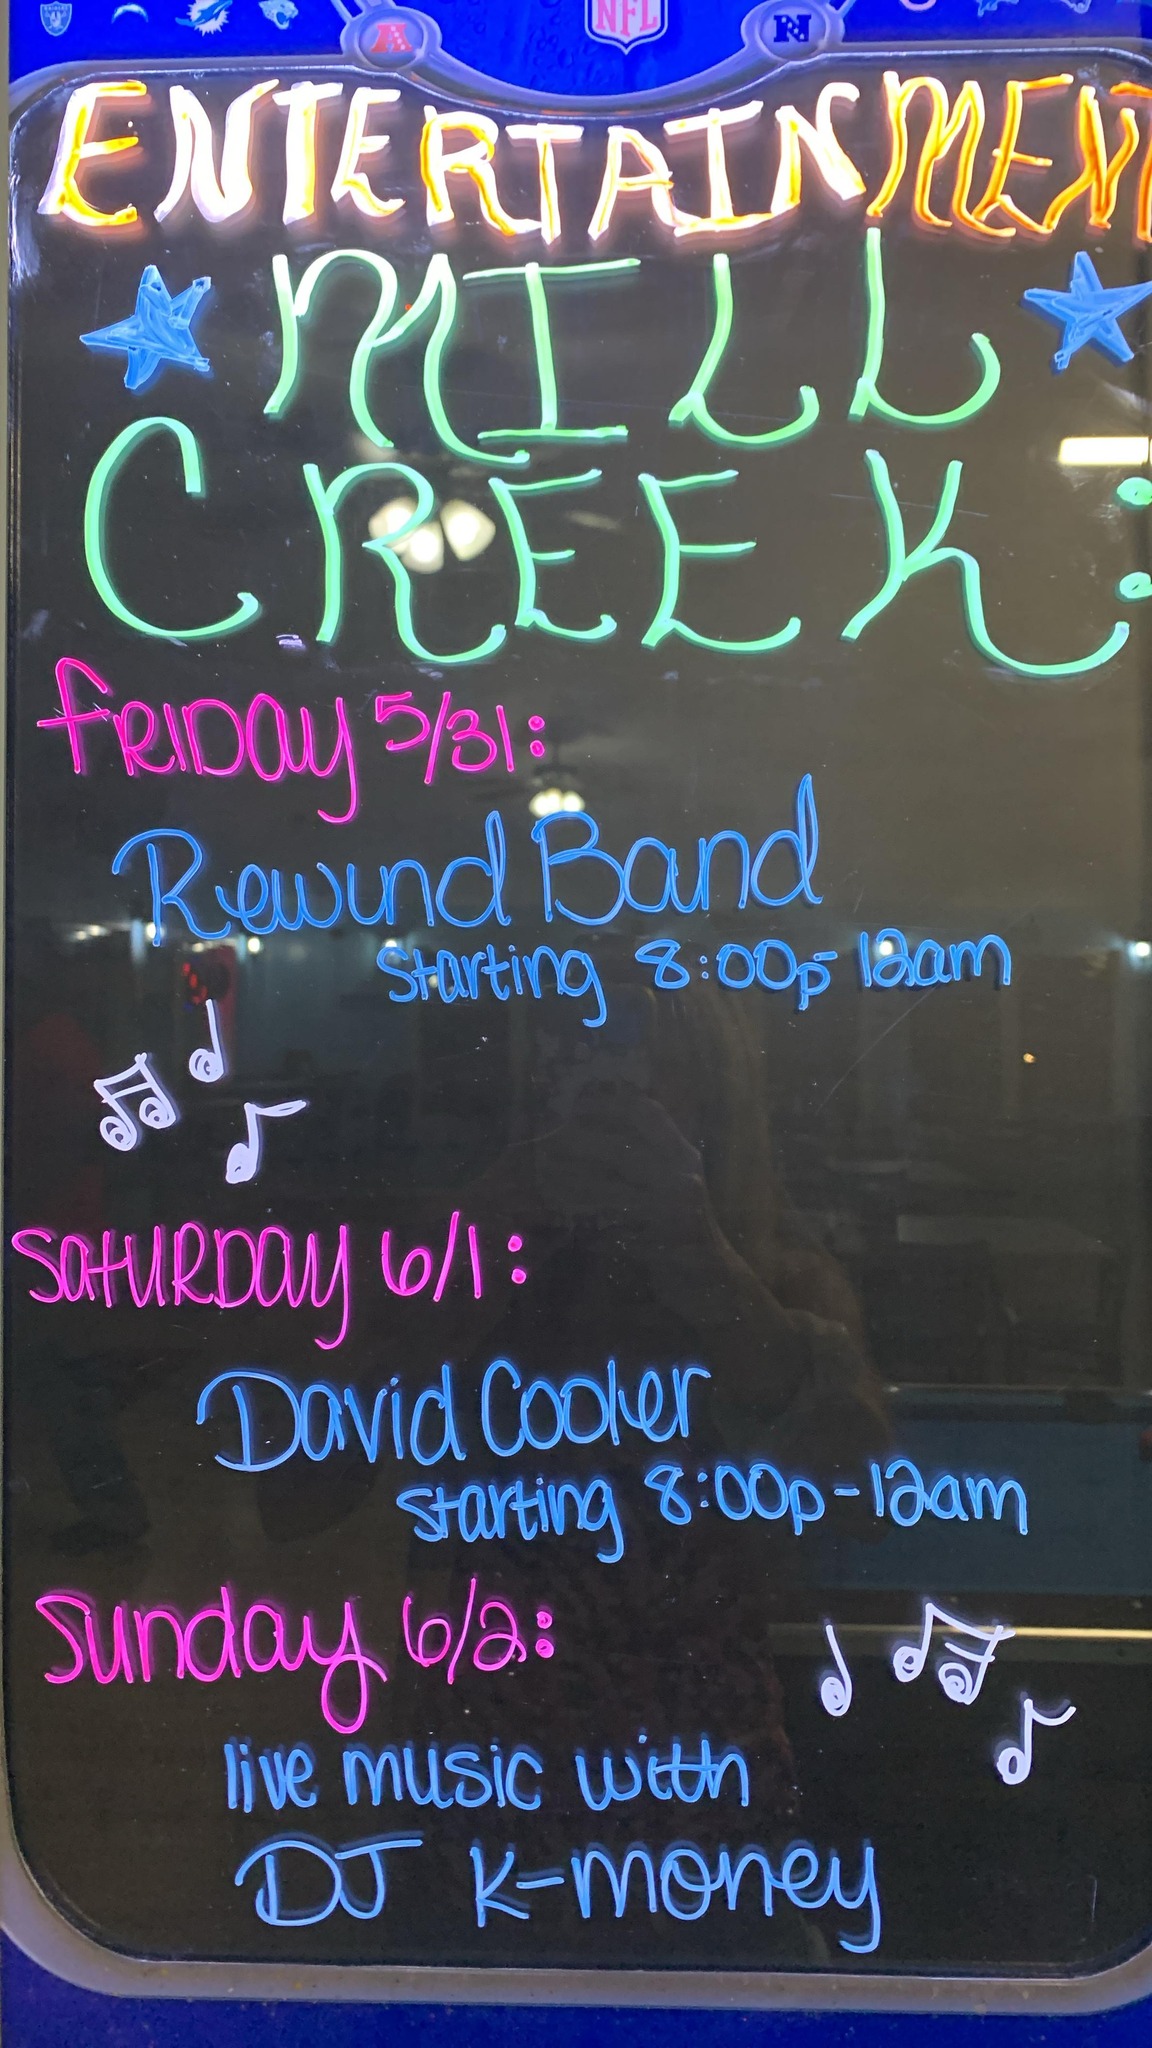 NFL
A N
ENTERTAINMENT
MILL
CREEK:
FRIDAY 5/31:
Rewind Band
starting 8:00p-12am
SATURDAY 6/1:
David Cooler
starting 8:00p-12am
Sunday 6/2:
live music with
DJ K-money